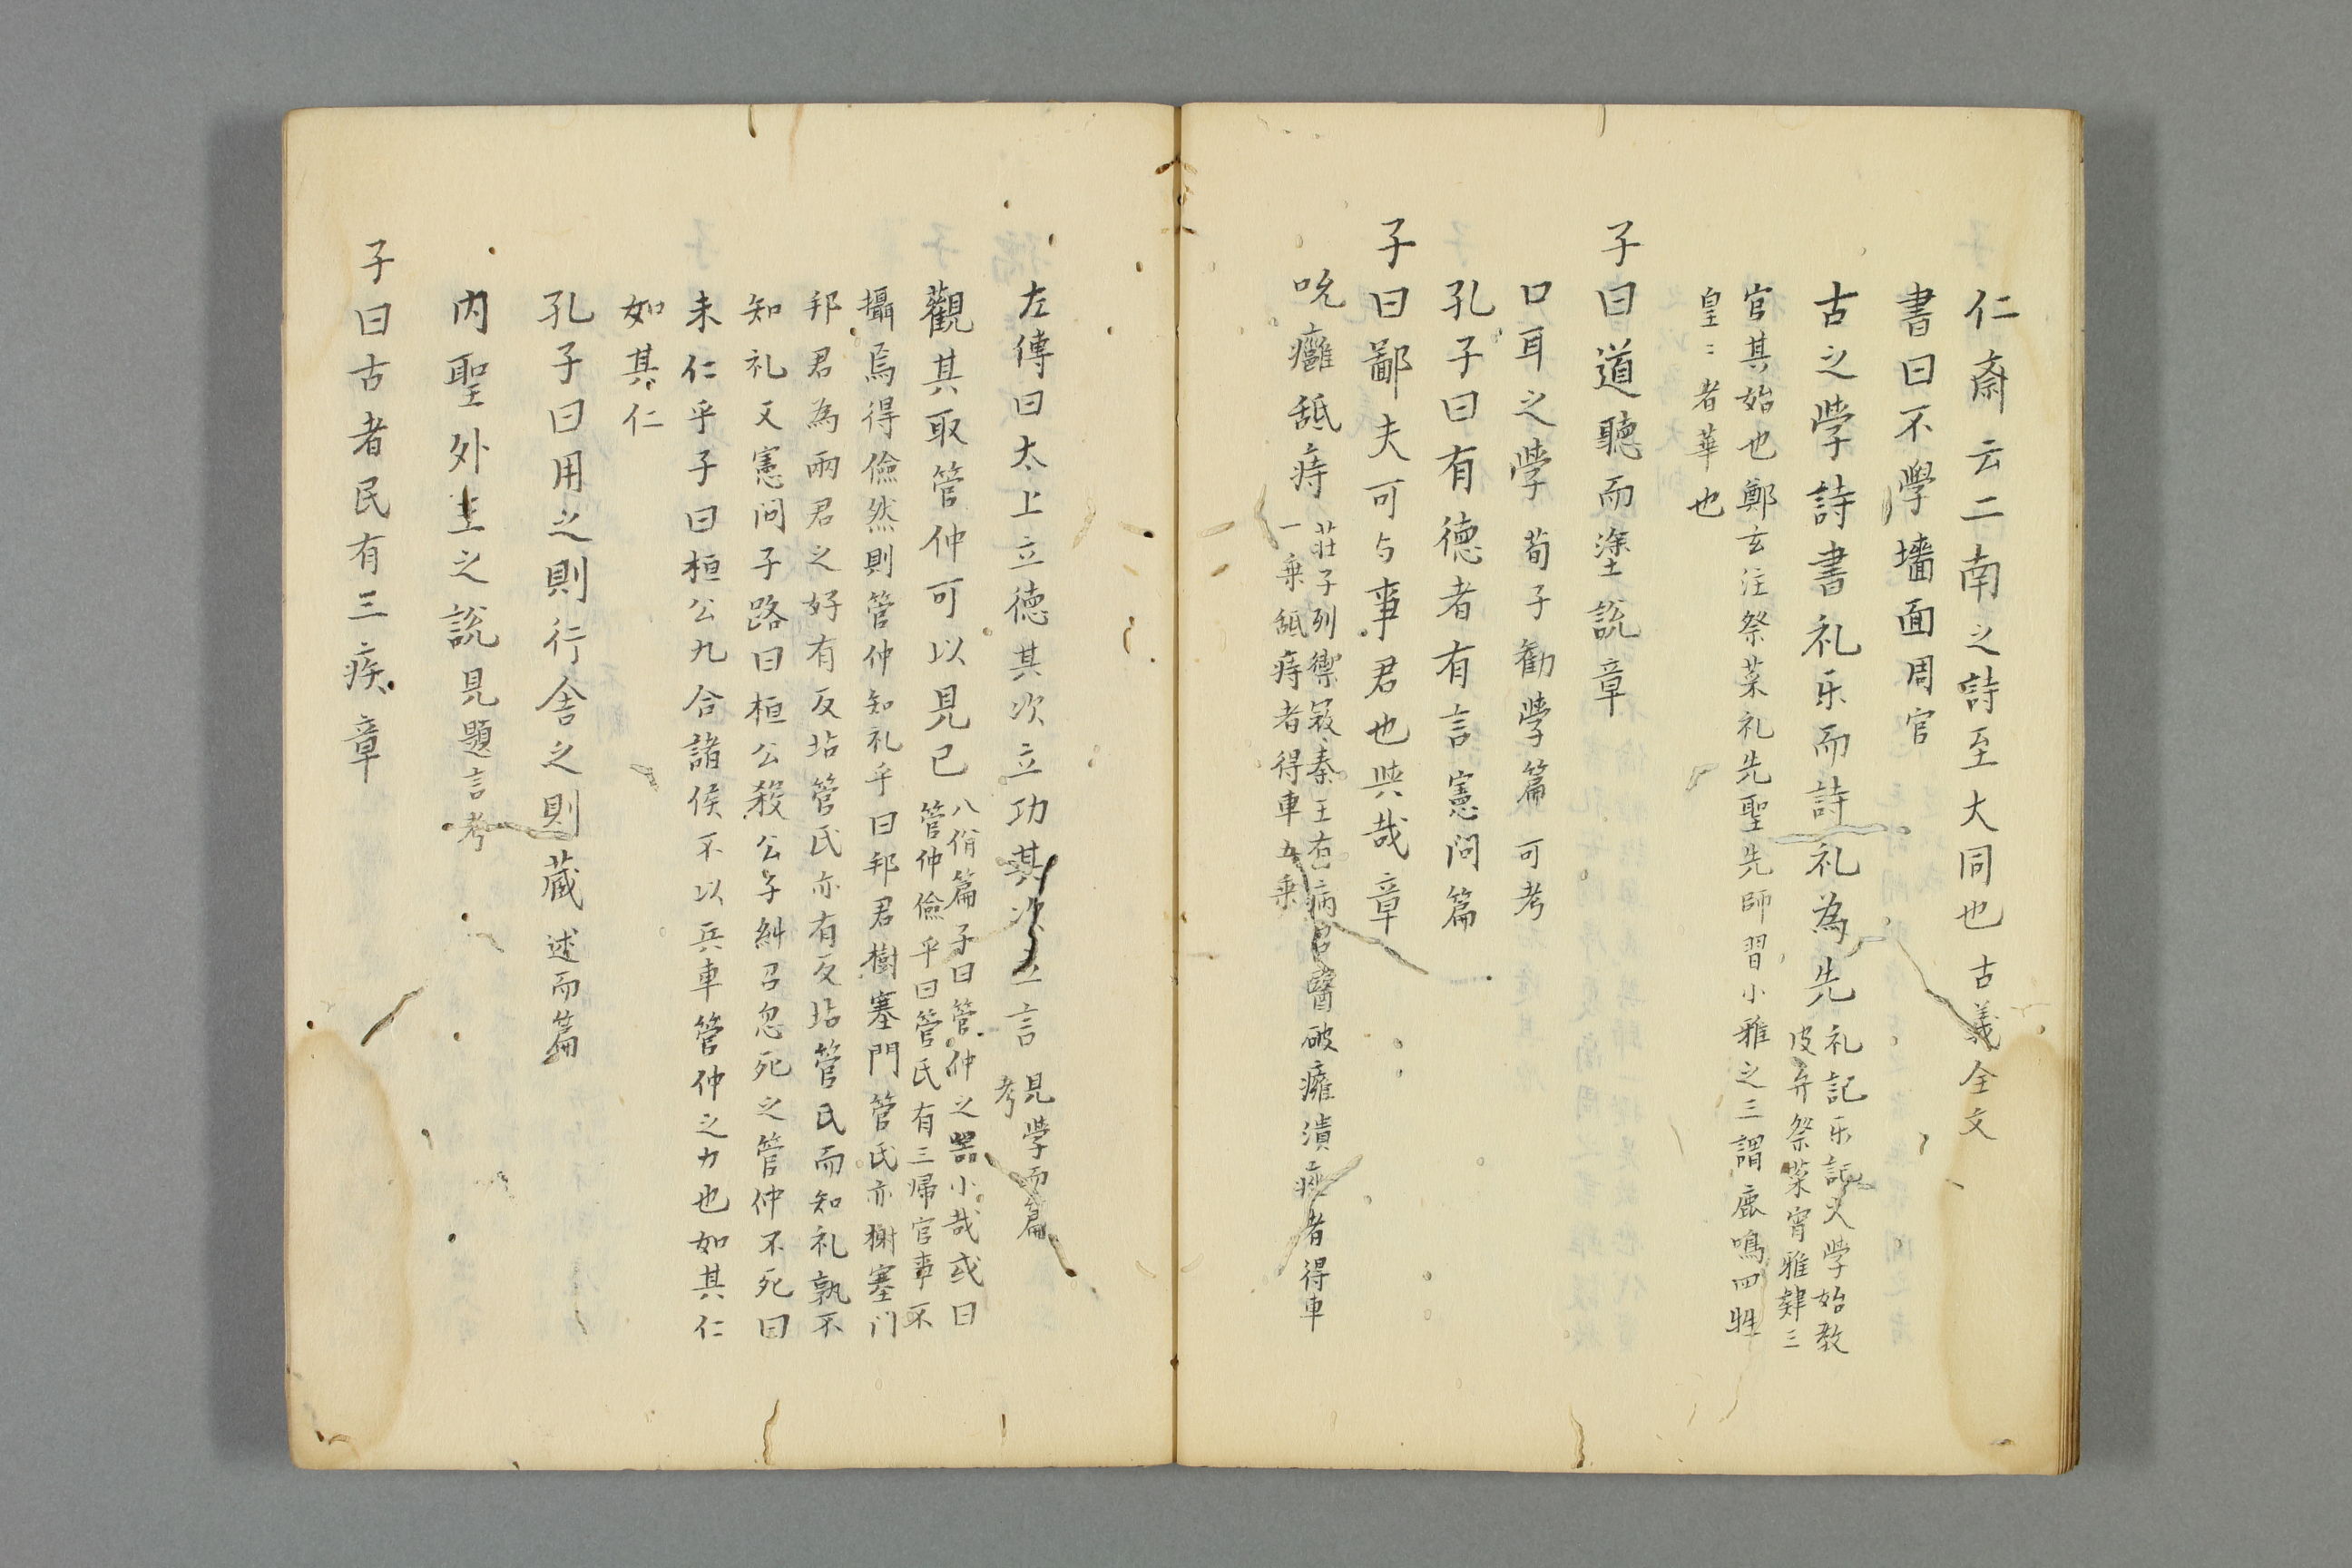 仁斎云二南之詩至大同也古義全文
書曰不學墻面周官
古之学詩書礼乐而詩礼為先
礼記乐記大学始教
皮弁祭菜宵雅肄三
官其始也鄭玄注祭菜礼先聖先師習小雅之三謂鹿鳴四牡
皇〻者華也
子曰道聽而塗説章
口耳之学荀子勸学篇可考
孔子曰有德者有言憲问篇
子曰鄙夫可与事君也與哉章
吮癰舐痔
莊子列禦寇秦王有病召醫破癰潰痤者得車
一乗舐痔者得車五乗
左傳曰太上立德其次立功其次立言
見学而篇
考
觀其取管仲可以見已
八佾篇子曰管仲之器小哉或曰
管仲儉乎曰管氏有三帰官事不
攝焉得儉然則管仲知礼乎曰邦君樹塞門管氏亦樹塞门
邦君為兩君之好有反坫管氏亦有反坫管氏而知礼孰不
知礼又憲问子路曰桓公殺公子糾召忽死之管仲不死曰
未仁乎子曰桓公九合諸侯不以兵車管仲之力也如其仁
如其仁
孔子曰用之則行舍之則蔵述而篇
内聖外王之説見題言考
子曰古者民有三疾章